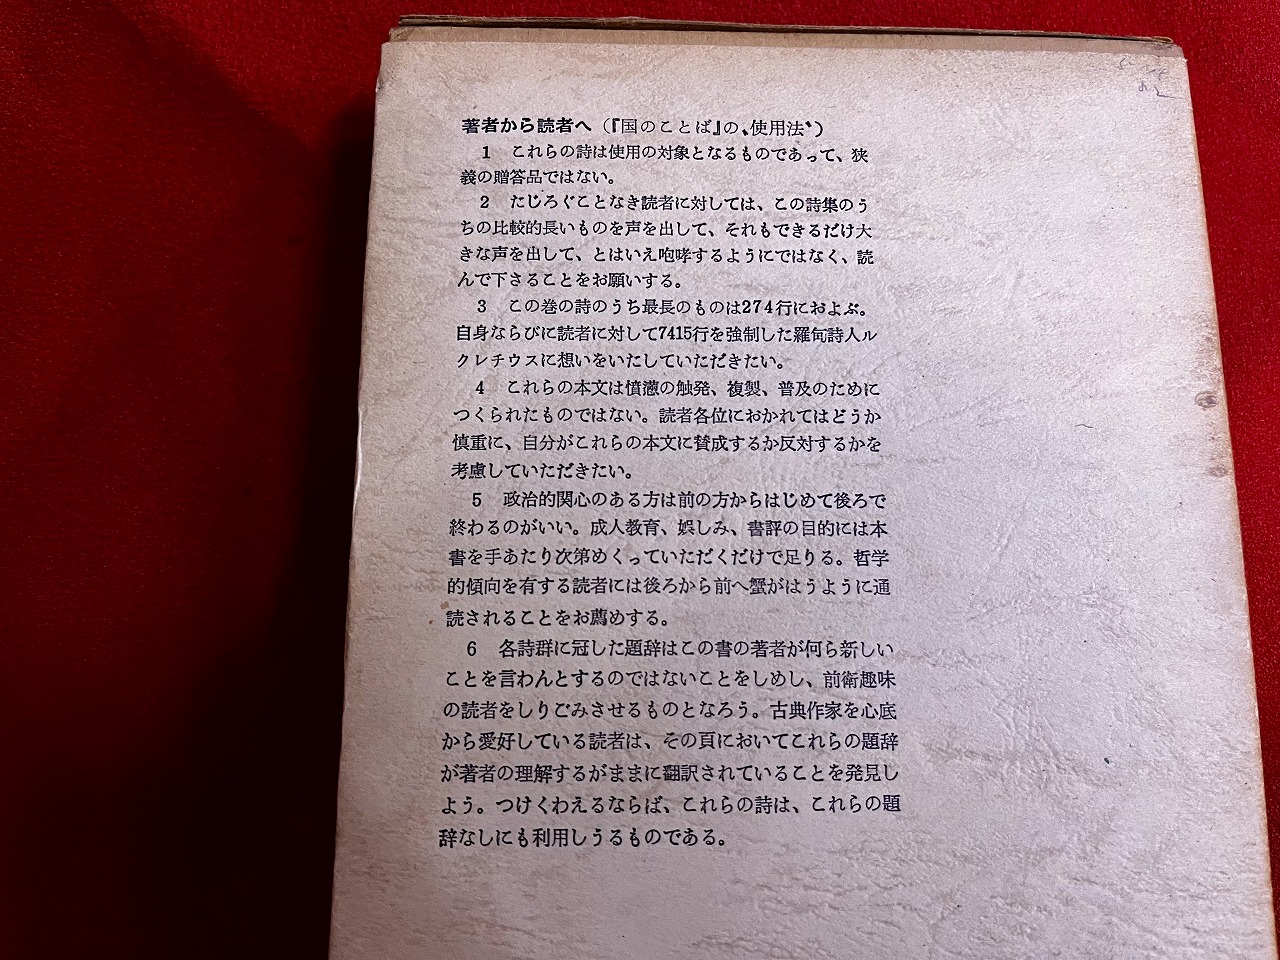 著者から読者へ(『国のことば』の〝使用法〟)
1 これらの詩は使用の対象となるものであって、狭
義の贈答品ではない。
2 たじろぐことなき読者に対しては、この詩集のう
ちの比較的長いものを声を出して、それもできるだけ大
きな声を出して、とはいえ咆哮するようにではなく、読
んで下さることをお願いする。
3 この巻の詩のうち最長のものは274行におよぶ。
自身ならびに読者に対して7415行を強制した羅甸詩人ル
クレチウスに想いをいたしていただきたい。
4 これらの本文は憤懣の触発、複製、普及のために
つくられたものではない。読者各位におかれてはどうか
慎重に、自分がこれらの本文に賛成するか反対するかを
考慮していただきたい。
5 政治的関心のある方は前の方からはじめて後ろで
終わるのがいい。成人教育、娯しみ、書評の目的には本
書を手あたり次第めくっていただくだけで足りる。哲学
的傾向を有する読者には後ろから前へ蟹がはうように通
読されることをお薦めする。
6 各詩群に冠した題辞はこの書の著者が何ら新しい
ことを言わんとするのではないことをしめし、前衛趣味
の読者をしりごみさせるものとなろう。古典作家を心底
から愛好している読者は、その頁においてこれらの題辞
が著者の理解するがままに翻訳されていることを発見し
よう。つけくわえるならば、これらの詩は、これらの題
辞なしにも利用しうるものである。